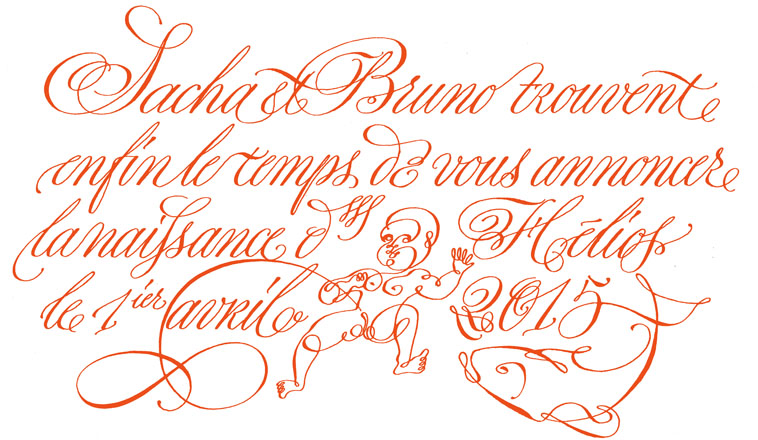 Sacha et Bruno trouvent
enfin le temps de vous annoncer
la naissance d''' Hélios
le 1ier avril 2015